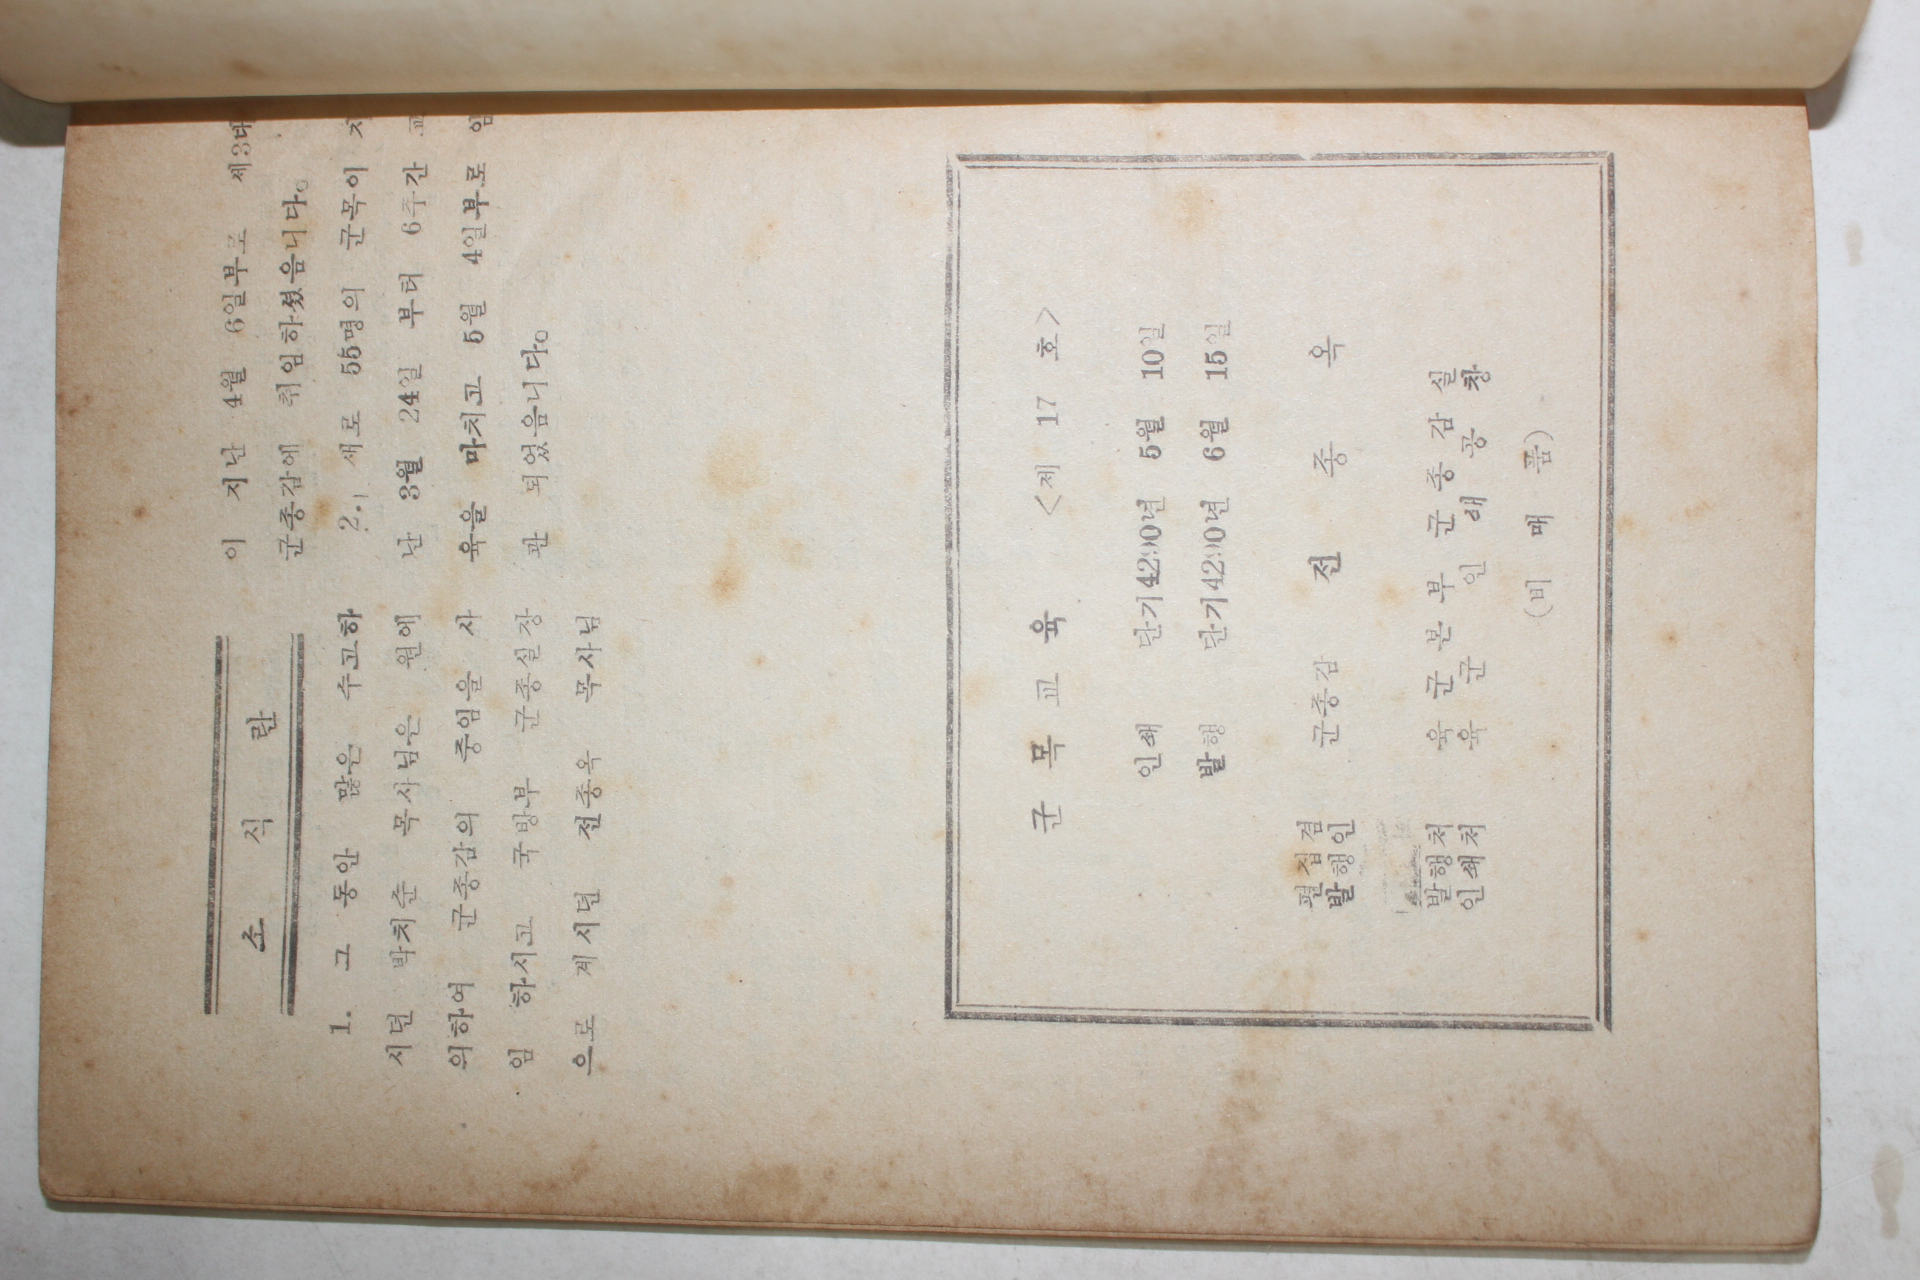 소 식 란
1. 그 동안 많은 수고하
시던 박치순 목사님은 원에
의하여 군종감의 중임을 사
임 하시고 국방부 군종실장
으로 계시던 전종옥 목사님
이 지난 4월 6일부로 제3대
군종감에 취임하셨음니다。
2. 새로 55명의 군목이 지
난 3월 24일 부터 6주간 교
육을 마치고 5월 4일부로 임
관 되었음니다。
군 목 교 육 <제 17 호>
인쇄 단기4290년 5월 10일
발행 단기4290년 6월 15일
편집겸
발행인 군종감 전 종 옥
발행처 육군본부군종감실
인쇄처 육군인쇄공창
(비 매 품)